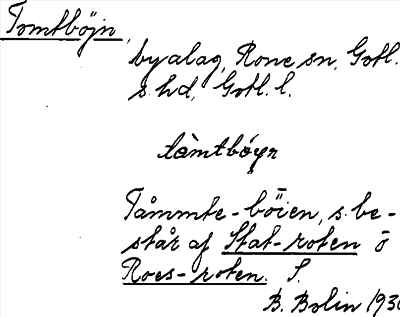 Tomtböjn,
byalag, Rone sn, Gotl.
s. hd, Gotl. l.
tàmtbóyn
Tåmmte-böien, s. be-
står af Stat-roten ō
Roes-roten. S.
B. Bolin 193